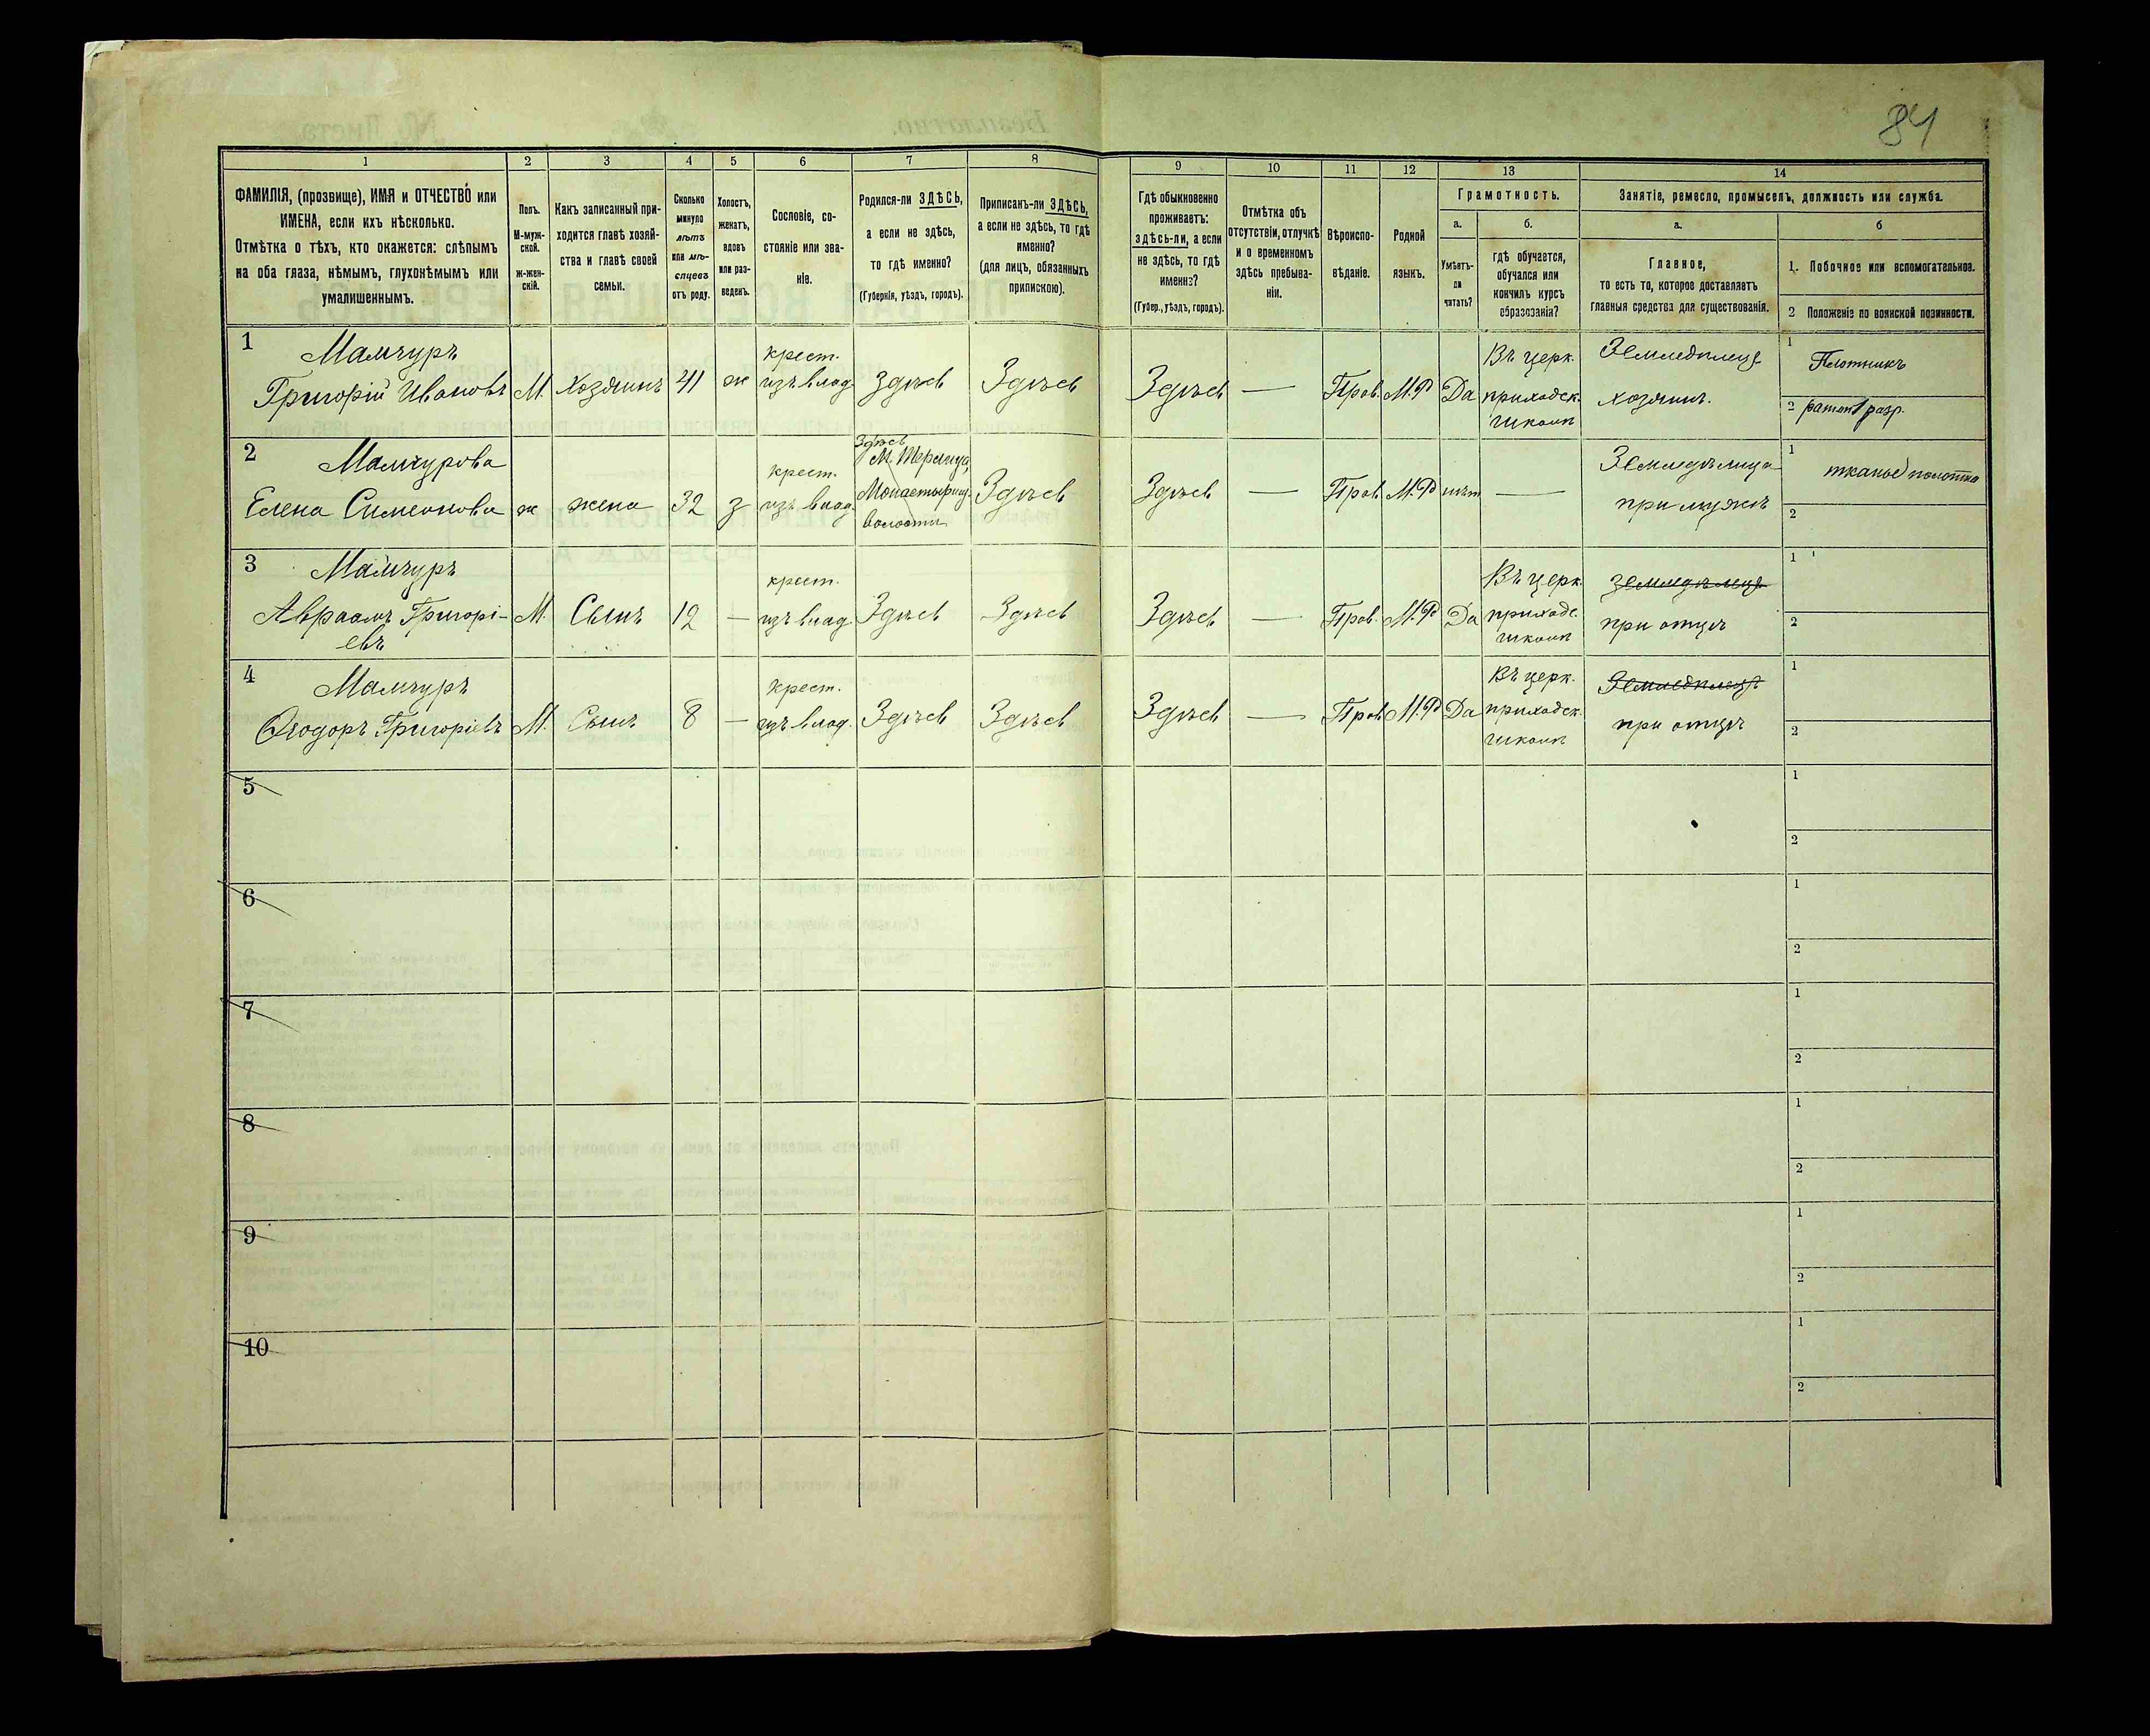 84
1
2
3
4
5
6
7
8
9
10
11
12
13
14
ФАМИЛІЯ, (прозвище), ИМЯ и ОТЧЕСТВО или
ИМЕНА, если ихъ нѣсколько.
Отмѣтка о тѣхъ, кто окажется: слѣпымъ
на оба глаза, нѣмымъ, глухонѣмымъ или
умалишеннымъ.
Полъ.
М-муж-
ской.
ж-жен-
скій.
Какъ записанный при-
ходится главѣ хозяй-
ства и главѣ своей
семьи.
Сколько
минуло
лѣтъ
или мѣ-
сяцевъ
отъ роду.
Холостъ,
женатъ,
вдовъ
или раз-
веденъ.
Сословіе, со-
стояніе или зва-
ніе.
Родился-ли ЗДѢСЬ,
а если не здѣсь,
то гдѣ именно?
(Губернія, уѣздъ, городъ).
Приписанъ-ли ЗДѢСЬ,
а если не здѣсь, то гдѣ
именно?
(для лицъ, обязанныхъ
припискою).
Гдѣ обыкновенно
проживаетъ:
здѣсь-ли, а если
не здѣсь, то гдѣ
именно?
(Губер., уѣздъ, городъ).
Отмѣтка объ
отсутствіи, отлучкѣ
и о временномъ
здѣсь пребыва-
ніи.
Вѣроиспо-
вѣданіе.
Родной
языкъ.
Грамотность.
а.
Умѣетъ-
ли
читать?
б.
гдѣ обучается,
обучался или
кончилъ курсъ
образованія?
Занятіе, ремесло, промыселъ, должность или служба.
а.
Главное,
то есть то, которое доставляетъ
главныя средства для существованія.
б
1. Побочное или вспомогательное.
2 Положеніе по воинской повинности.
1
Мамчуръ
Григорій Ивановъ
М.
Хозяинъ
41
ж
крест.
изъ влад.
Здѣсь
Здѣсь
Здѣсь
—
Прав.
М.Р
Да
Въ церк.
приходск.
школѣ
Земледѣлецъ
хозяинъ.
1
Плотникъ
2 ратн 1 разр.
2
Мамчурова
Елена Симеонова
ж
жена
32
з
крест.
изъ влад.
Здѣсь
Монастырищ.
волости
Здѣсь
Здѣсь
—
Прав.
М.Р
нѣт
—
Земледѣлица
при мужѣ
1
тканье полотна
2
3
Мамчуръ
Авраамъ Григорі-
евъ
М.
Сынъ
12
—
крест.
изъ влад.
Здѣсь
Здѣсь
Здѣсь
—
Прав.
М.Р
Да
Въ церк.
приходс.
школѣ
земледѣлецъ
при отцѣ
1
2
4
Мамчуръ
Ѳеодоръ Григоріевъ
М.
Сынъ
8
—
крест.
изъ влад.
Здѣсь
Здѣсь
Здѣсь
—
Прав.
М.Р
Да
Въ церк.
приходск.
школѣ
Земледѣлецъ
при отцѣ
1
2
5
1
2
6
1
2
7
1
2
8
1
2
9
1
2
10
1
2